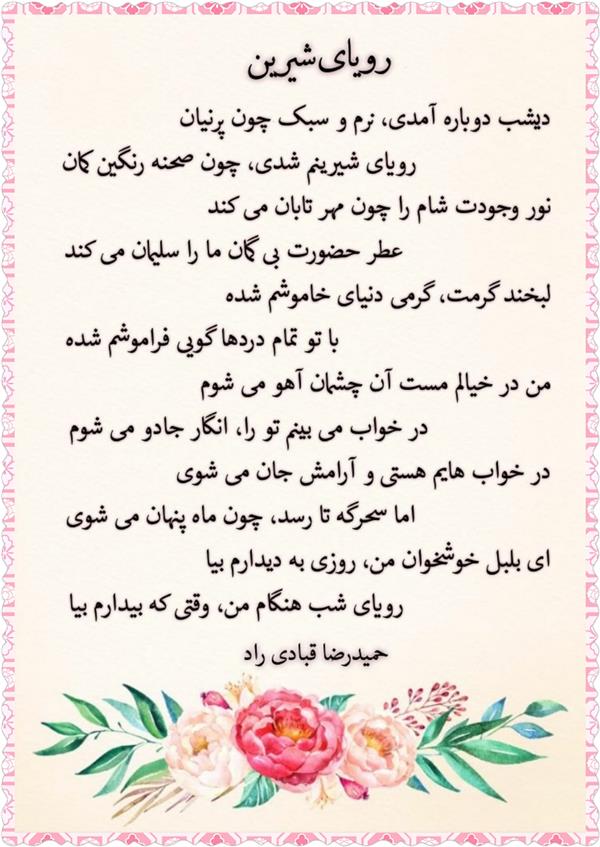 رویای شیرین
دیشب دوباره آمدی، نرم و سبک چون پرنیان
رویای شیرینم شدی، چون صحنه رنگین کمان
نور وجودت شام را چون مهر تابان می کند
عطر حضورت بی گمان ما را سلیمان می کند
لبخند گرمت، گرمی دنیای خاموشم شده
با تو تمام دردها گویی فراموشم شده
من در خیالم مست آن چشمان آهو می شوم
در خواب می بینم تو را، انگار جادو می شوم
در خواب هایم هستی و آرامش جان می شوی
اما سحرگه تا رسد، چون ماه پنهان می شوی
ای بلبل خوشخوان من، روزی به دیدارم بیا
رویای شب هنگام من، وقتی که بیدارم بیا
حمیدرضا قبادی راد